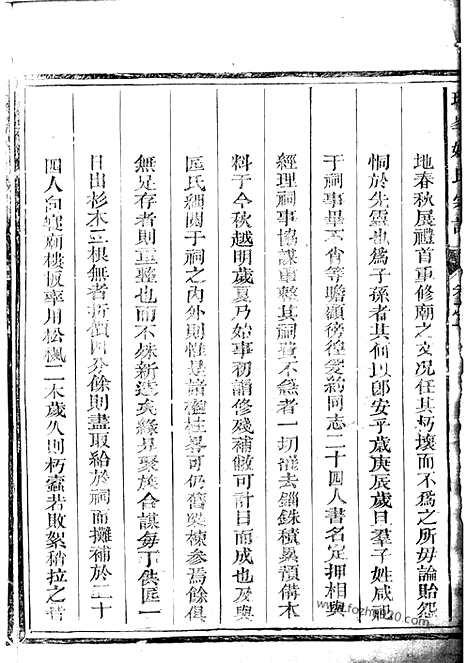 地春秋展禮首重修廟之文况任其朽壞而不為之所毋論貽怨
恫於先靈也為子孫者其何以卽安乎歲庚辰歲日羣子姓咸祀
于祠事畢不肖等瞻顧徬徨爰約同志二十四人書名定押相與
經理祠事協謀重整其祠費不急者一切汰去錙銖積累預備木
料于今秋越明歲夏乃始事初謂修殘補敝可計日而成也及與
匠氏細閱于祠之內外則惟是諸楹柱畧可仍舊與棟參焉餘俱
無足存者則重整也而不殊新造矣緣是聚族合謀每丁供匠一
日出杉木三根無者折價四分餘則盡取給於祠而攤補於二十
四人向寢廟樓板率用松楓二木歲久則朽蠹若敗絮稍拉之皆
氏宗譜
www.fozhu920.com